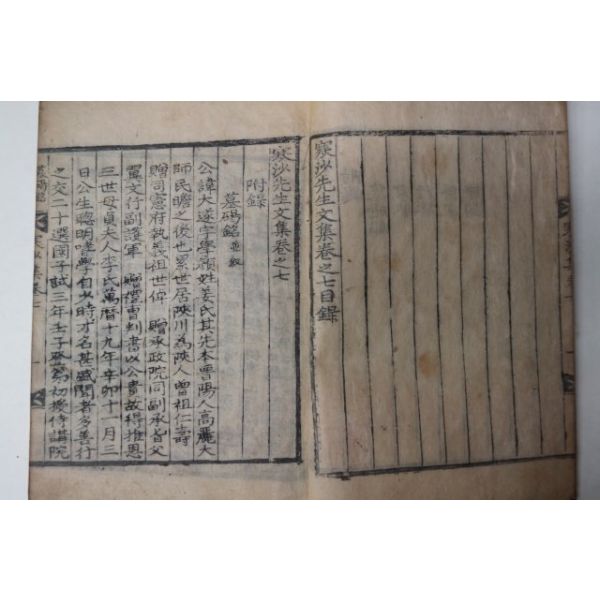 寒沙先生文集卷之七目錄
寒沙先生文集卷之七
附錄
墓碣銘 並叙
公諱大遂字學顔姓姜氏其先本晉陽人高麗大
師民瞻之後也累世居陜川為陜人曾祖仁壽
贈司憲府執義祖世倬 贈承政院同副承旨父
翼文行副護軍 贈禮曹判書以公貴故得推恩
三世母貞夫人李氏萬曆十九年辛卯十一月三
日公生聰明嗜學自少時才名甚盛聞者多善行
之交二十選國子試三年壬子登第初授侍講院